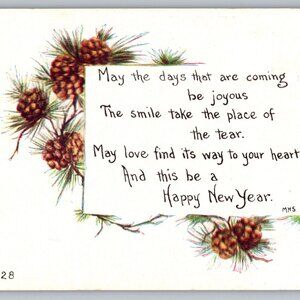 May the days that are coming
be joyous
The smile take the place of
the tear.
May love find its way to your heart
And this be a
Happy New Year.
MHS
28